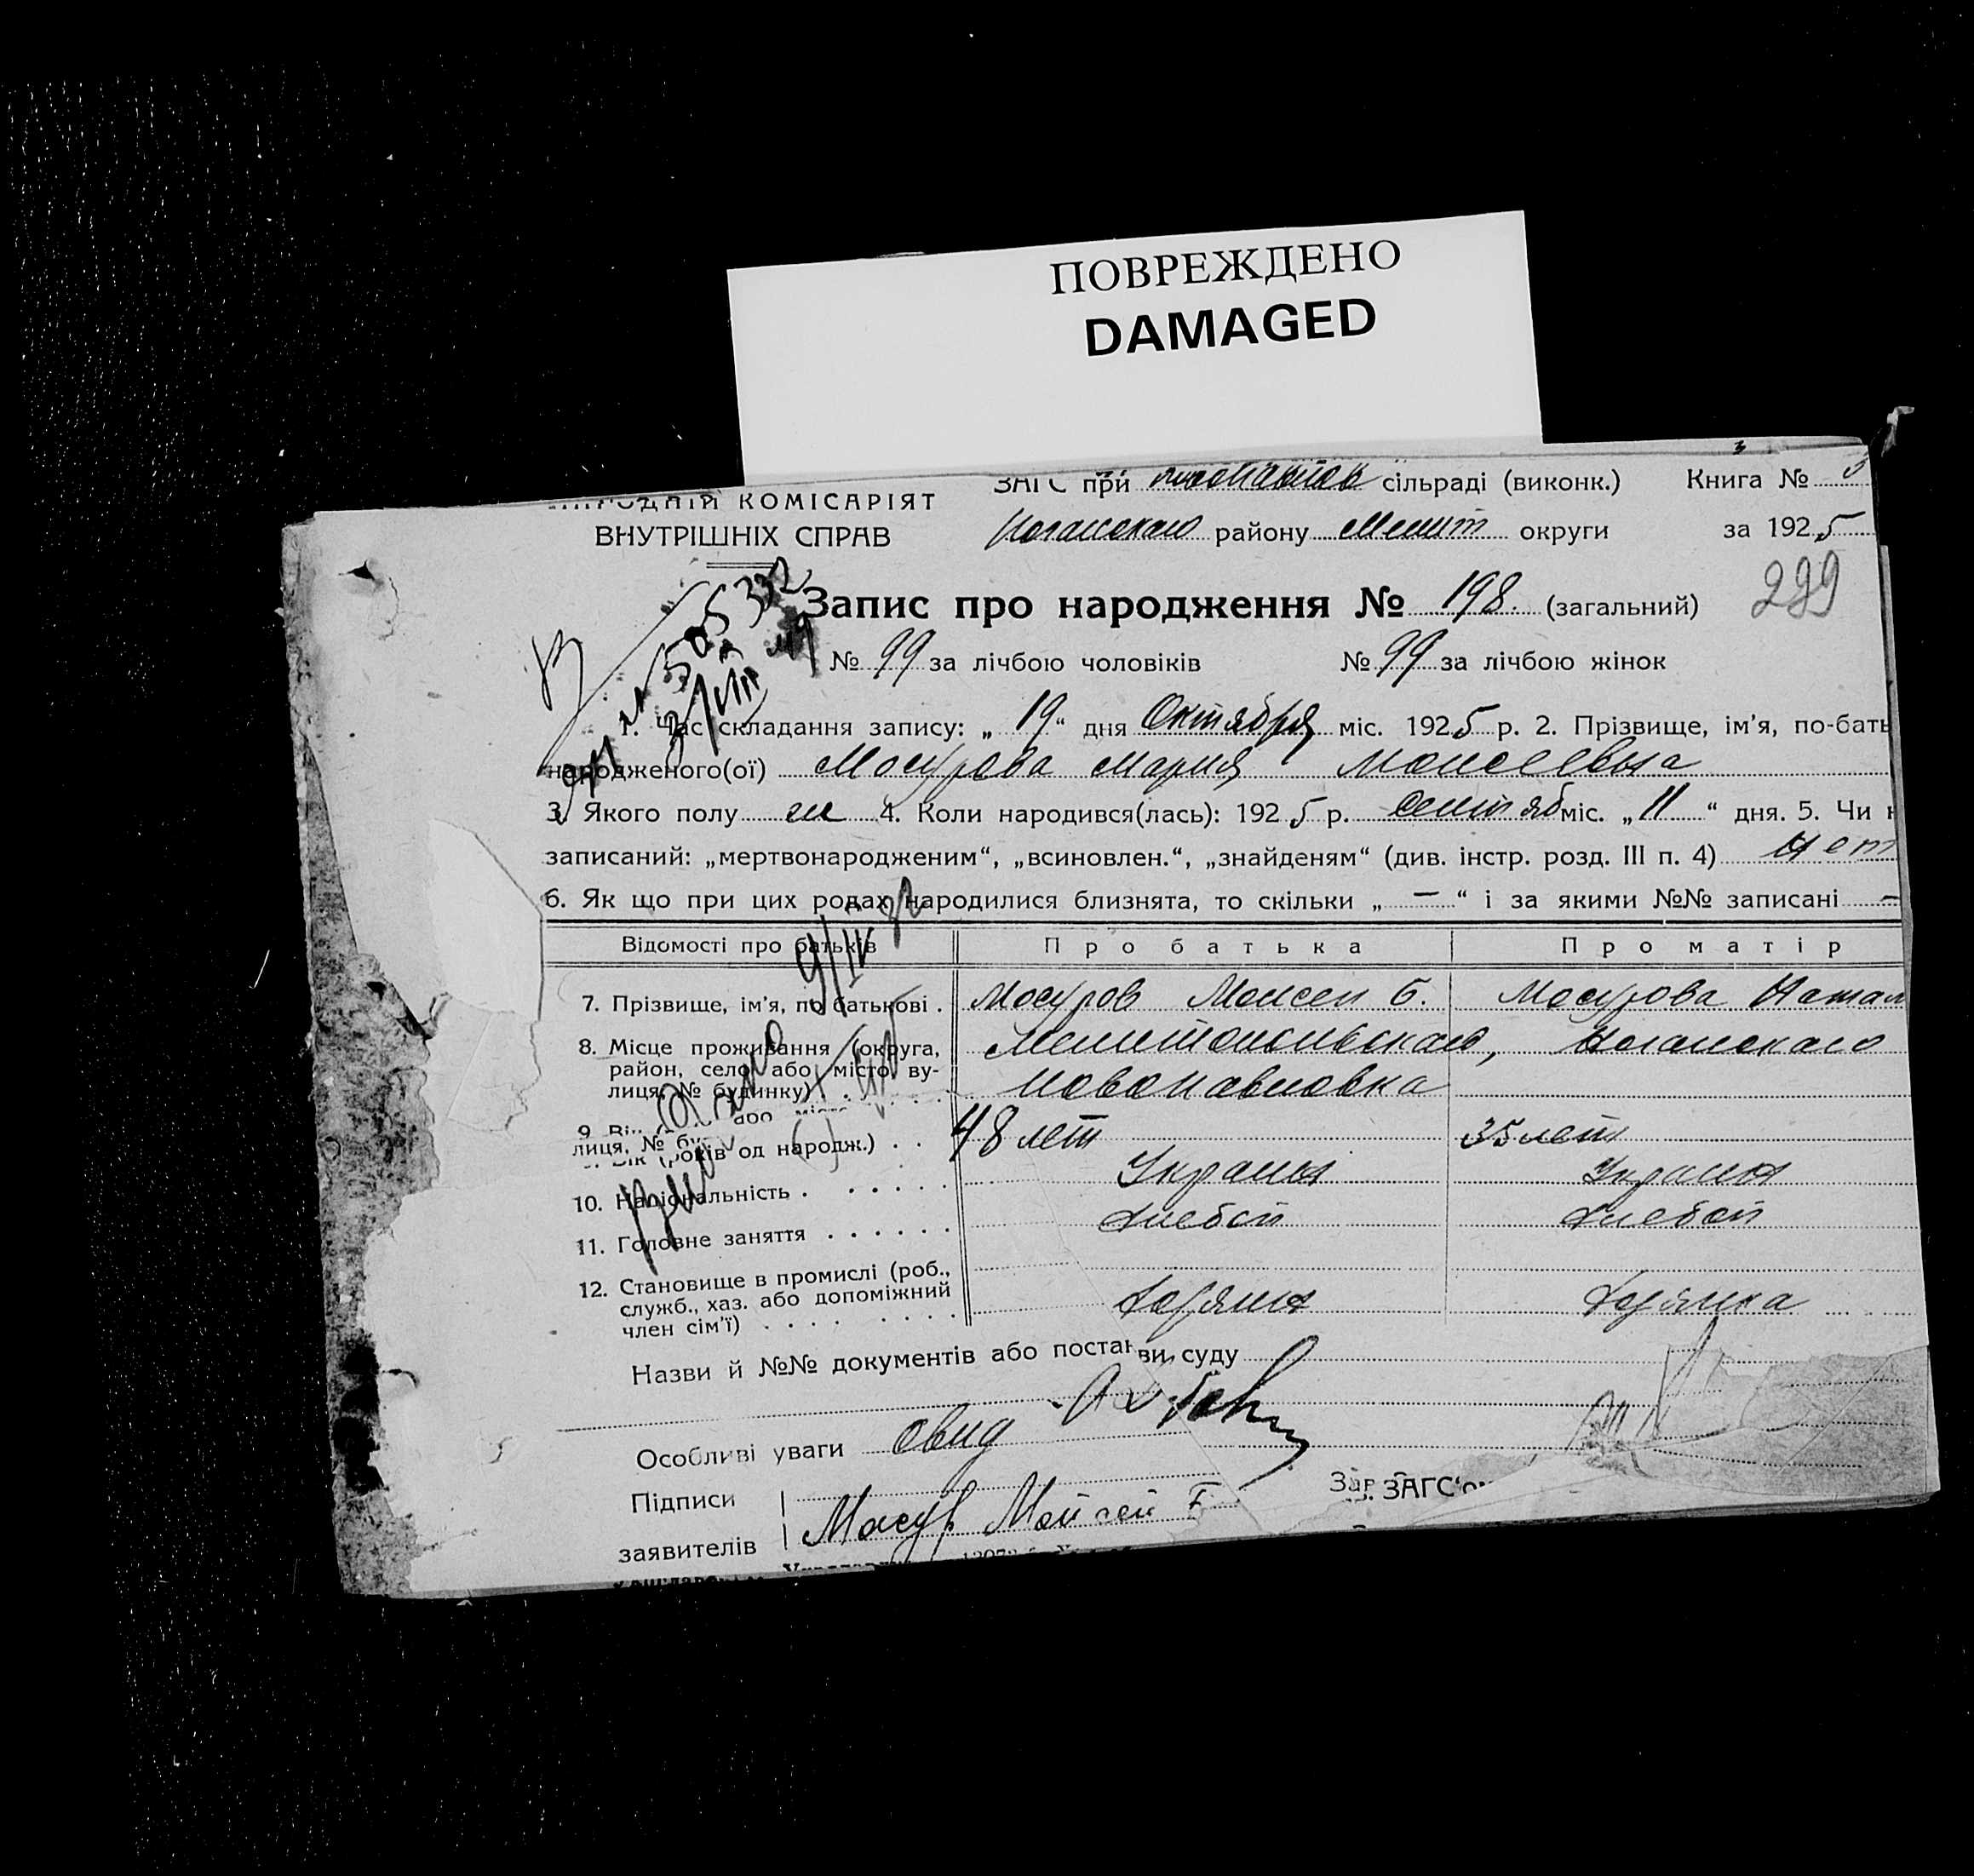 ПОВРЕЖДЕНО
DAMAGED
КОМІСАРІЯТ
ВНУТРІШНІХ СПРАВ
ЗАГС при сільраді (виконк.) Книга №
Ногайского району Мелит округи за 1925
Запис про народження № 198. (загальний) 299
№ 99 за лічбою чоловіків № 99 за лічбою жінок
1. Час складання запису: „19“ дня Октября міс. 1925 р. 2. Прізвище, ім’я, по-бать
народженого(ої) Мосурова Мария Моисеевна
3. Якого полу ж 4. Коли народився(лась): 1925 р. сентяб міс. „11“ дня. 5. Чи н
записаний: „мертвонародженим“, „всиновлен.“, „знайденям“ (див. інстр. розд. III п. 4) Нет
6. Як що при цих родах народилися близнята, то скільки „—“ і за якими №№ записані —
Відомості про батьків Про батька Про матір
7. Прізвище, ім’я, по батькові . Мосуров Моисей Б. Мосурова Натал
8. Місце проживання (округа, район, село або місто ву-лиця, № будинку) Мелитопольскаго, Ногайскаго
Новопавловка
лиця, № бу
(років од народж.) . . 48 лет 35 лет
10. Національність . Украин Украин
11. Головне заняття . . . . . . Хлебоп Хлебоп
12. Становище в промислі (роб.,
служб., хаз. або допоміжний
член сім’ї) . . . . Хозяин Хозяйка
Назви й №№ документів або постанови суду
Особливі уваги
Підписи Зав. ЗАГС‘ом
заявителів Мосур Мойсей Б